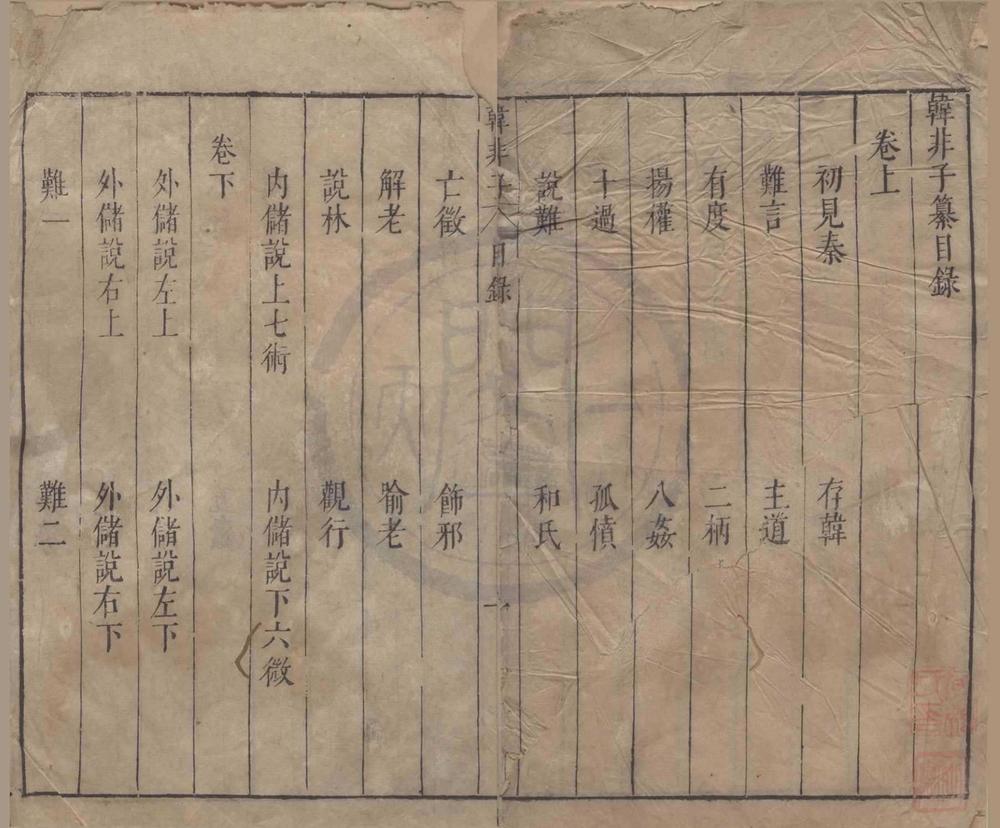 韓非子纂目錄
卷上
初見秦 存韓
難言 主道
有度 二柄
揚權 八姦
十過 孤憤
說難 和氏
韓非子 目錄 一
亡徵 飾邪
解老 喻老
說林 觀行
內儲說上七術 內儲說下六微
卷下
外儲說左上 外儲說左下
外儲說右上 外儲說右下
難一 難二